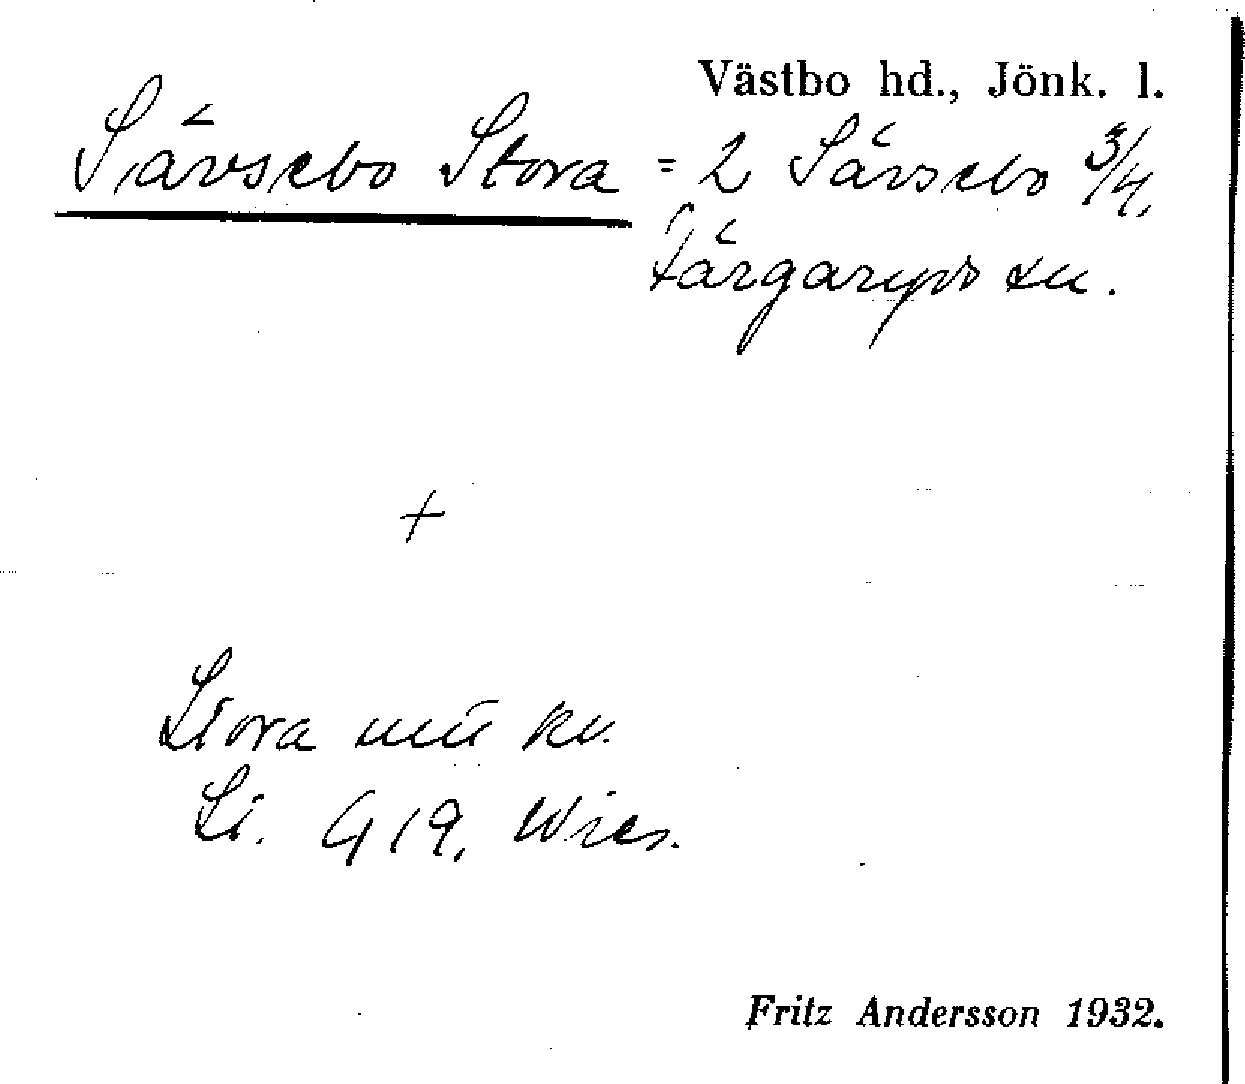 Västbo hd., Jönk. l.
Sävsebo Stora = 2 Sävsebo 3/4,
Färgaryds sn.
+
Stora
Li. G 19,
Fritz Andersson 1932.